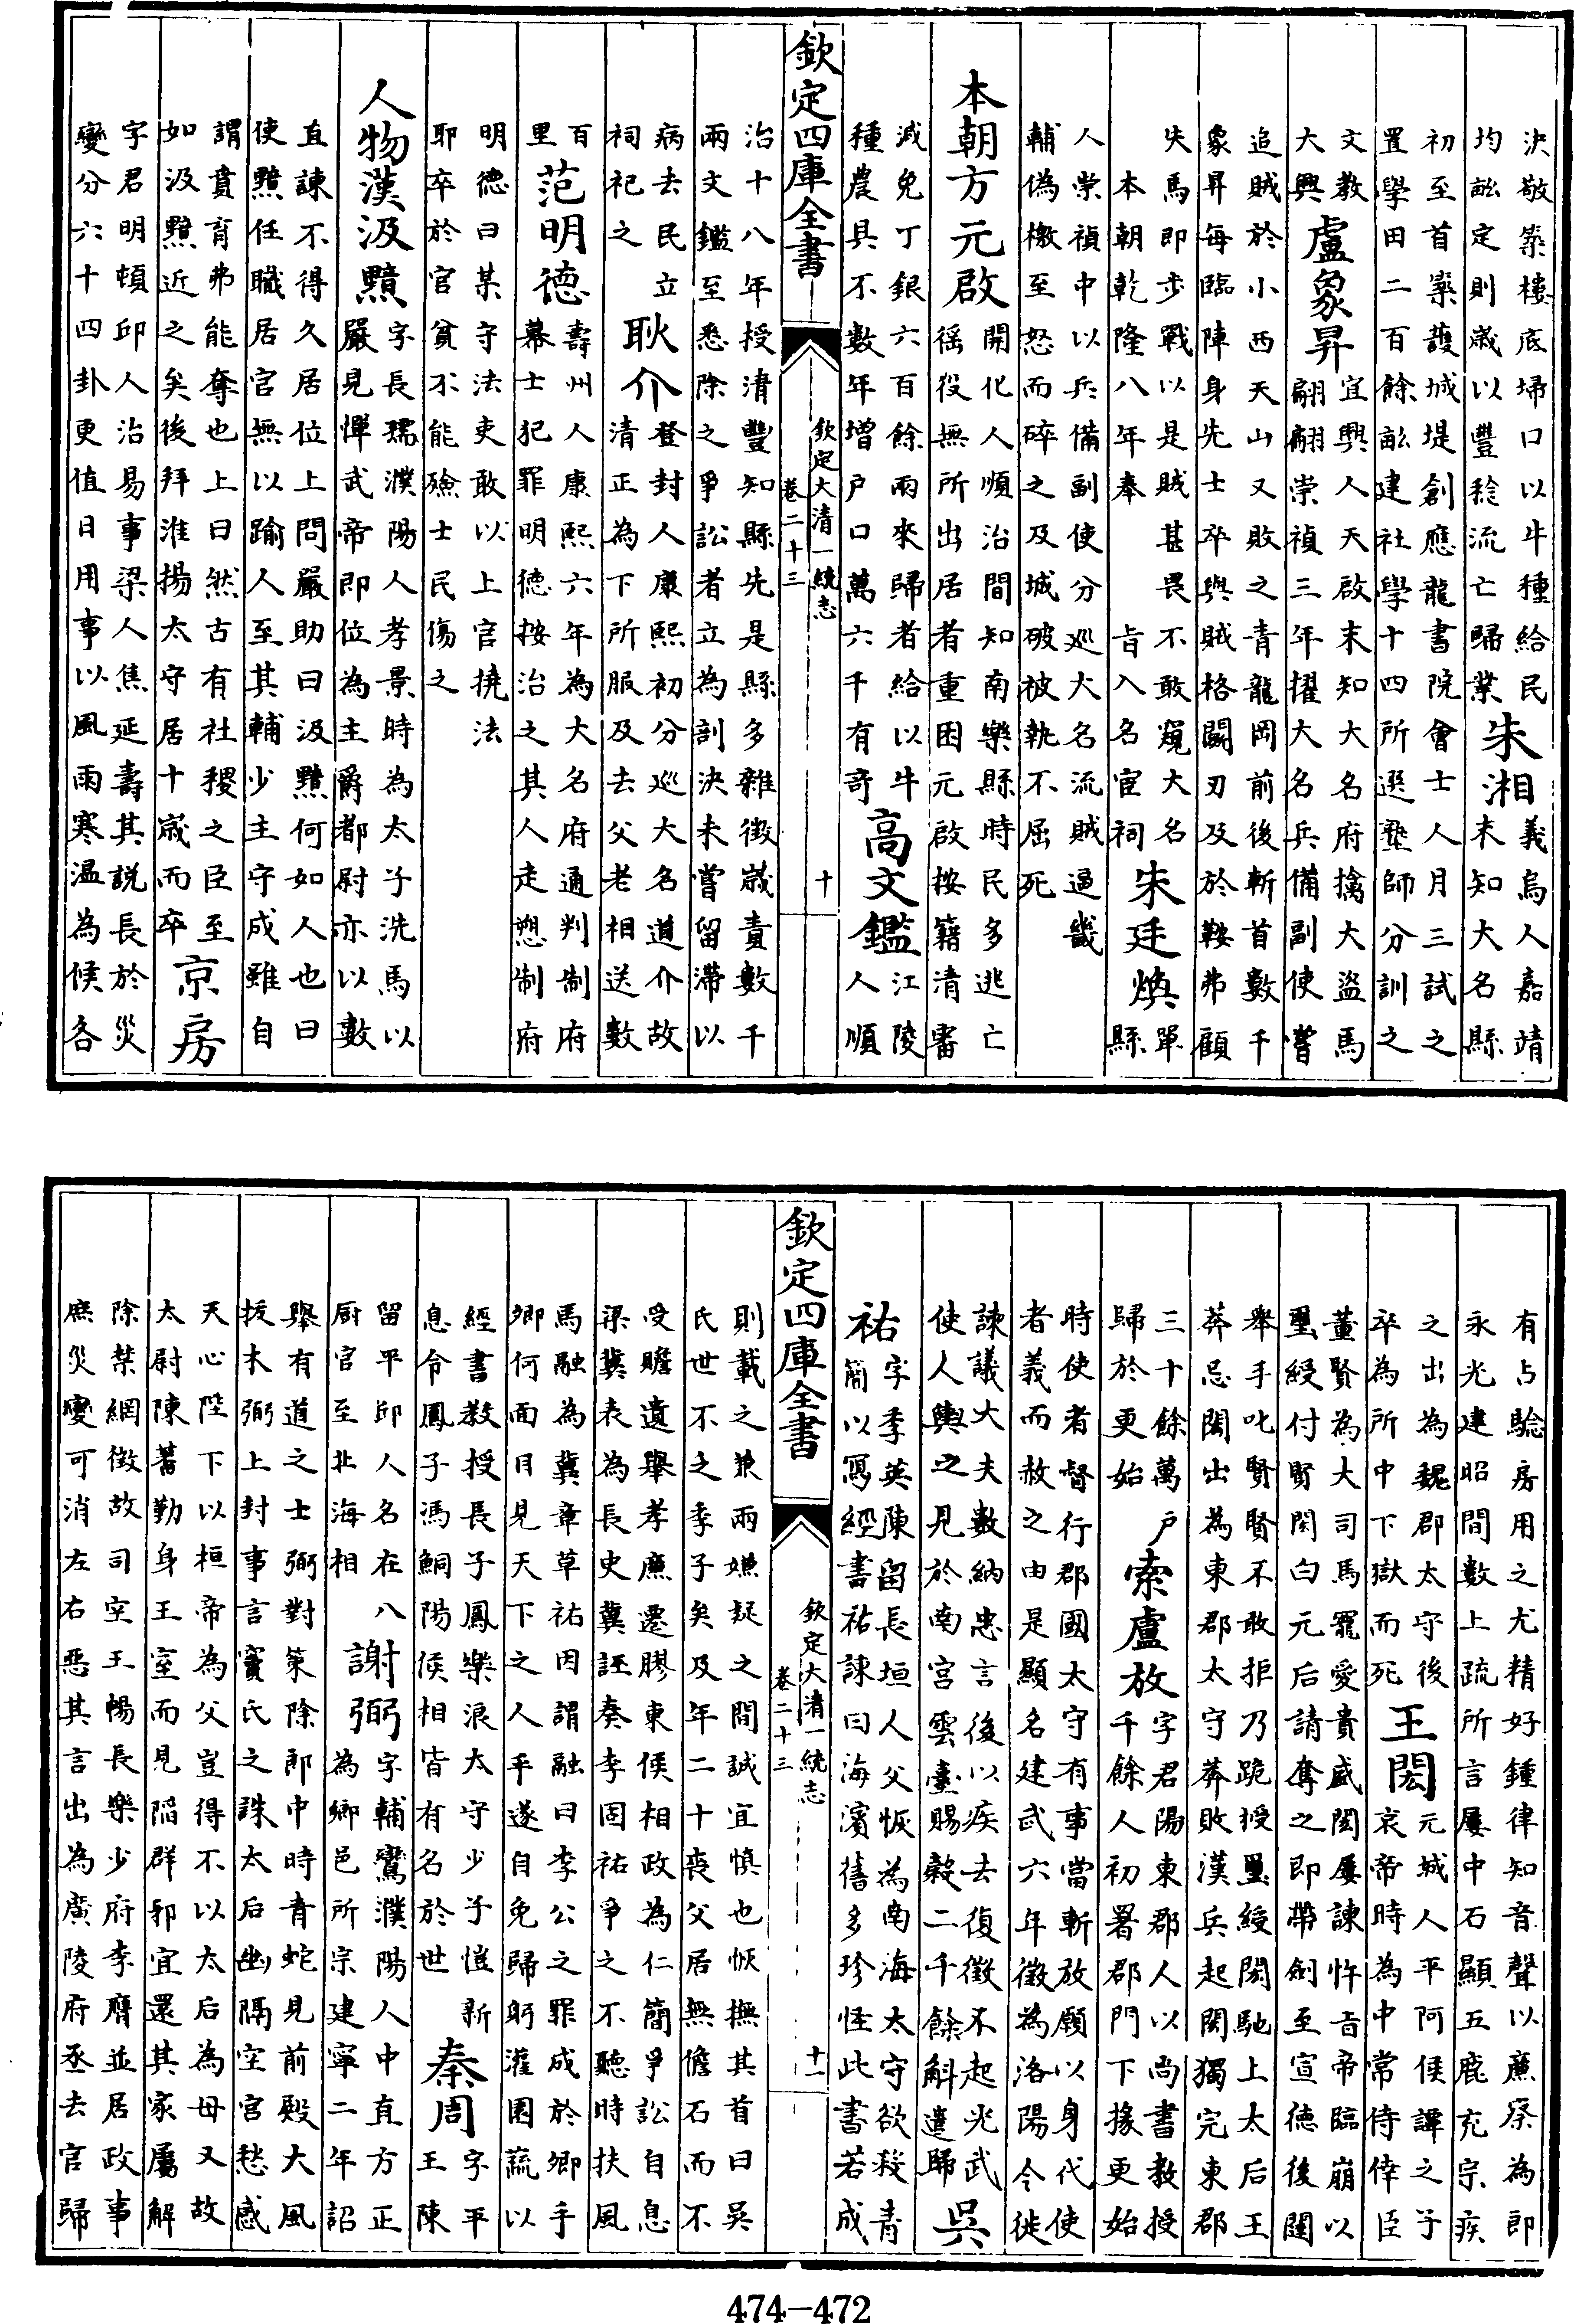 決敬築樓底埽口以牛種給民
均畝定則歲以豐稔流亡歸業
朱湘
義烏人嘉靖
末知大名縣
初至首築護城堤創應龍書院會士人月三試之
置學田二百餘畝建社學十四所選塾師分訓之
文教
大興
盧象昇
宜興人天啟末知大名府擒大盜馬
翩翩崇禎三年擢大名兵備副使嘗
追賊於小西天山又敗之青龍岡前後斬首數千
象昇每臨陣身先士卒與賊格鬬刃及於鞍弗顧
失馬即步戰以是賊甚畏不敢窺大名
本朝乾隆八年奉 旨入名宦祠
朱廷煥
單
縣
人崇禎中以兵備副使分巡大名流賊逼畿
輔偽檄至怒而碎之及城破被執不屈死
本朝方元啟
開化人順治間知南樂縣時民多逃亡
徭役無所出居者重困元啟按籍清審
減免丁銀六百餘兩來歸者給以牛
種農具不數年增户口萬六千有奇
高文鑑
江陵
人順
欽定四庫全書
欽定大清一統志
卷二十三
十
治十八年授清豐知縣先是縣多雜徵歲責數千
兩文鑑至悉除之爭訟者立為剖決未嘗留滯以
病去民立
祠祀之
耿介
登封人康熙初分巡大名道介故
清正為下所服及去父老相送數
百
里
范明德
壽州人康熙六年為大名府通判制府
幕士犯罪明德按治之其人走愬制府
明德曰某守法吏敢以上官撓法
耶卒於官貧不能殮士民傷之
人物漢汲黯
字長孺濮陽人孝景時為太子洗馬以
嚴見憚武帝即位為主爵都尉亦以數
直諫不得久居位上問嚴助曰汲黯何如人也曰
使黯任職居官無以踰人至其輔少主守成雖自
謂賁育弗能奪也上曰然古有社稷之臣至
如汲黯近之矣後拜淮揚太守居十歲而卒
京房
字君明頓邱人治易事梁人焦延壽其説長於災
變分六十四卦更值日用事以風雨寒温為候各
有占驗房用之尤精好鍾律知音聲以廉察為郎
永光建昭間數上疏所言屢中石顯五鹿充宗疾
之出為魏郡太守後
卒為所中下獄而死
王閎
元城人平阿侯譚之子
哀帝時為中常侍倖臣
董賢為大司馬寵愛貴盛閎屢諫忤旨帝臨崩以
璽綬付賢閎白元后請奪之即帶劍至宣德後闥
舉手叱賢賢不敢拒乃跪授璽綬閎馳上太后王
莽忌閎出為東郡太守莽敗漢兵起閎獨完東郡
三十餘萬户
歸於更始
索盧放
字君陽東郡人以尚書教授
千餘人初署郡門下掾更始
時使者督行郡國太守有事當斬放願以身代使
者義而赦之由是顯名建武六年徵為洛陽令徙
諫議大夫數納忠言後以疾去復徵不起光武
使人輿之見於南宮雲臺賜穀二千餘斛遣歸
吳
祐
字季英陳留長垣人父恢為南海太守欲殺青
簡以寫經書祐諫曰海濱舊多珍怪此書若成
欽定四庫全書
欽定大清一統志
卷二十三
十一
則載之兼兩嫌疑之間誠宜慎也恢撫其首曰吳
氏世不之季子矣及年二十喪父居無儋石而不
受贍遺舉孝廉遷膠東侯相政為仁簡爭訟自息
梁冀表為長史冀誣奏李固祐爭之不聽時扶風
馬融為冀章草祐因謂融曰李公之罪成於卿手
卿何面目見天下之人乎遂自免歸躬灌園蔬以
經書教授長子鳳樂浪太守少子愷新
息令鳳子馮鮦陽侯相皆有名於世
秦周
字平
王陳
留平邱人名在八
厨官至北海相
謝弼
字輔鸞濮陽人中直方正
為鄉邑所宗建寧二年詔
舉有道之士弼對策除郎中時青蛇見前殿大風
拔木弼上封事言竇氏之誅太后幽隔空宮愁感
天心陛下以桓帝為父豈得不以太后為母又故
太尉陳蕃勤身王室而見陷群邪宜還其家屬解
除禁網徵故司空王暢長樂少府李膺並居政事
庶災變可消左右惡其言出為廣陵府丞去官歸
474—472